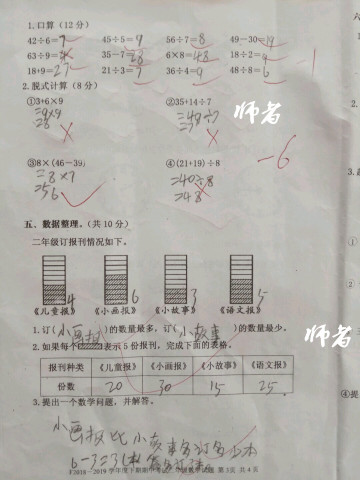 1.口算（12分）
42÷6=7 45÷5=9 56÷7=8 49－30=19
63÷9= 35－7=28 6×8=48 18÷2=9
18+9=27 21÷3=7 36÷4=9 48÷8=6
-1
2.脱式计算（8分）
①3+6×9 ②35+14÷7
=9×9 =49÷7
师者
③8×(46－39) ④(21+19)÷8
=8×7 =40÷8
=56 =48
-6
五、数据整理。（共10分）
二年级订报刊情况如下。
4 6 3 5
《儿童报》 《小画报》 《小故事》 《语文报》
1.订（小画报）的数量最多，订（小故事）的数量最少。
师者
2.如果每个 表示5份报刊，完成下面的表格。
报刊种类 《儿童报》 《小画报》 《小故事》 《语文报》
份数 20 30 15 25
3.提出一个数学问题，并解答。
小画报比小故事多订多少本
6-3=3(本)
2018－2019学年度下期期中考试二年级数学试题 第3页 共4页